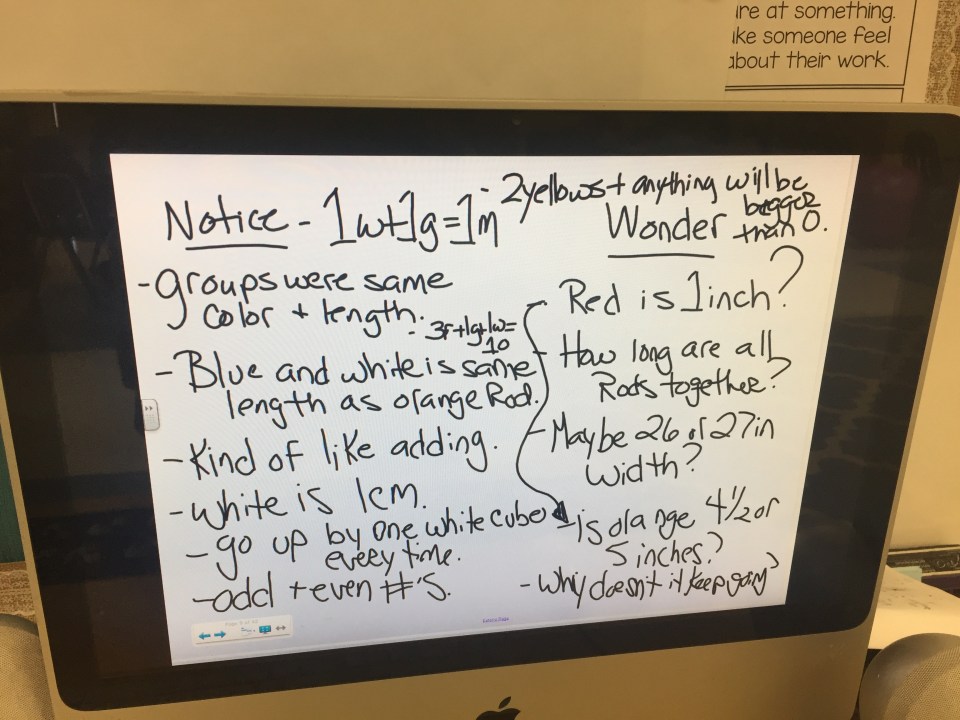 ire at something.
ike someone feel
about their work.
Notice - 1w+1g=1m
- 2 yellows + anything will be
bigger
than O.
- groups were same
color + length.
- 3r+1g+1w=
10
- Blue and white is same
length as orange Rod.
- Kind of like adding.
- white is 1cm.
- go up by one white cube
every time.
- odd + even #'s.
Wonder
- Red is 1 inch?
- How long are all
Rods together?
- Maybe 26 or 27 in
width?
- is orange 4 1/2 or
5 inches?
- Why doesn't it keep going?